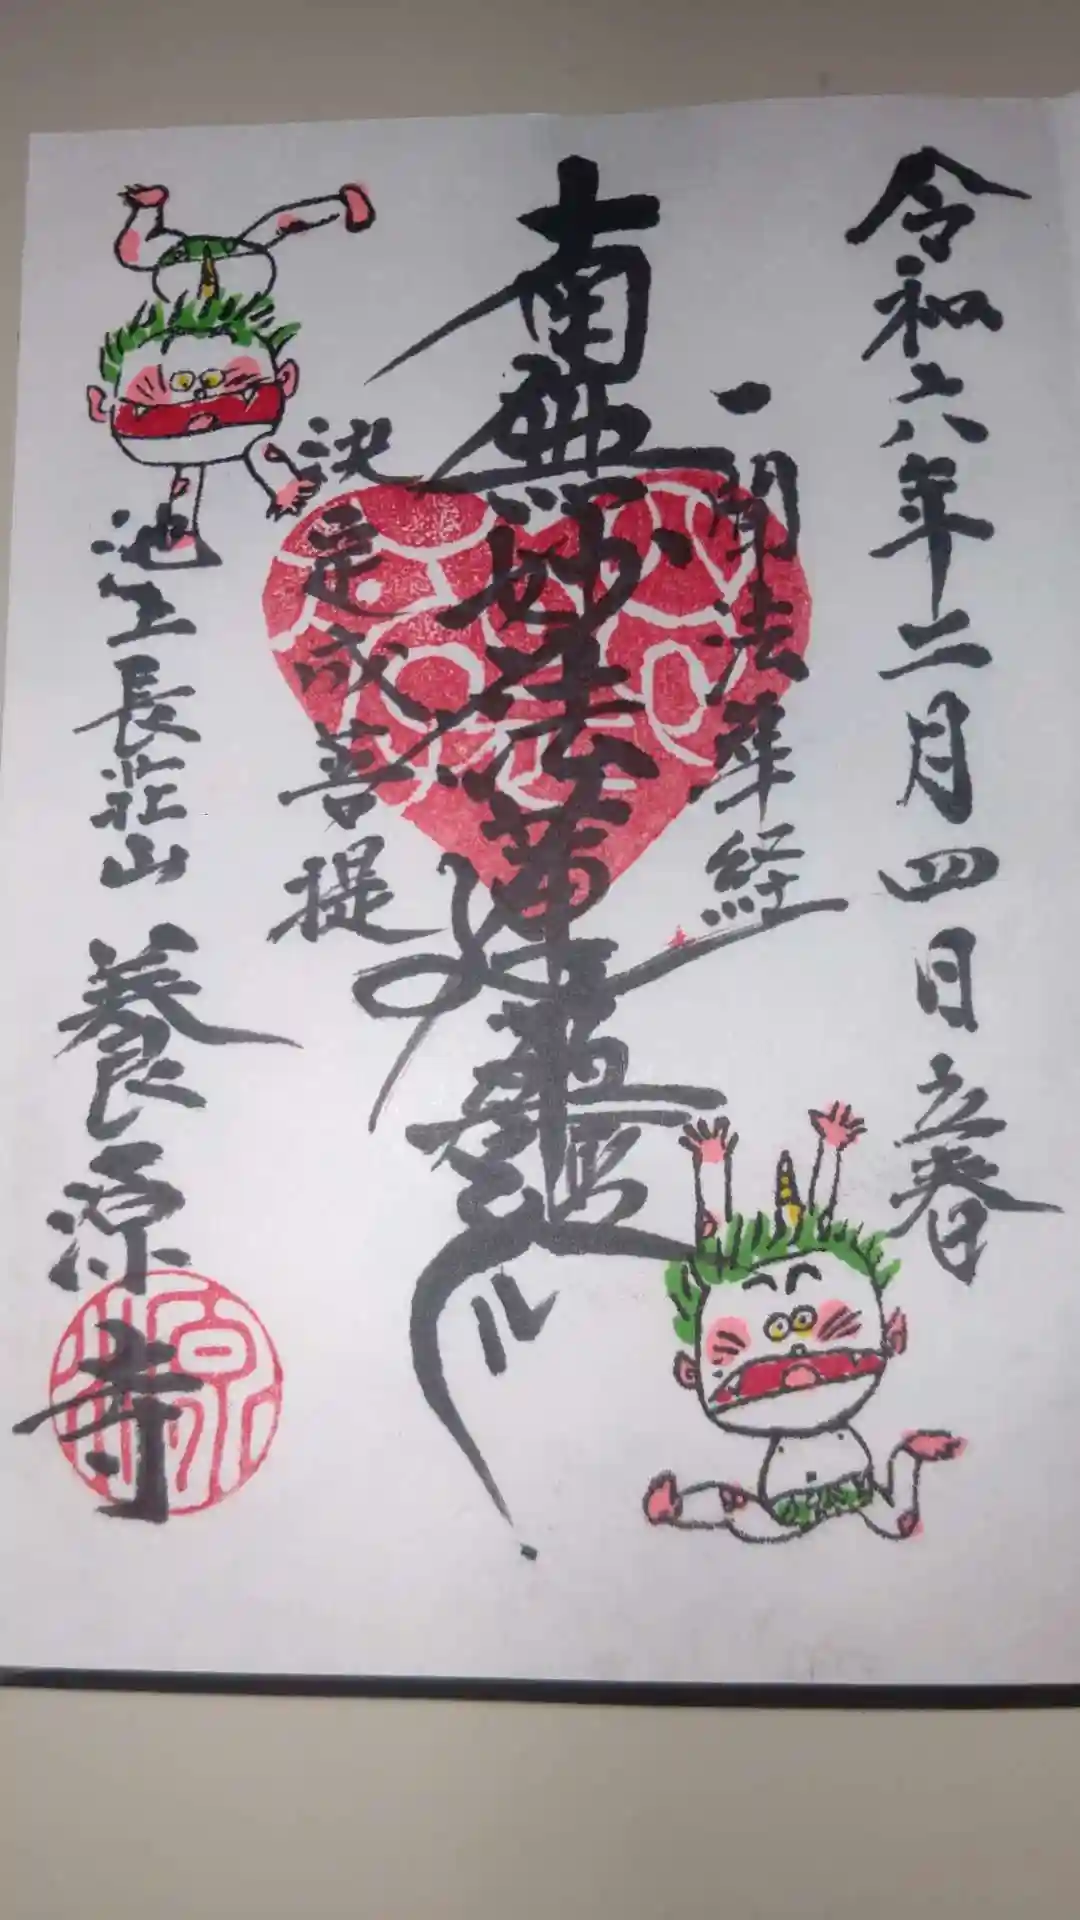 令和六年二月四日立春
一聞法華経
南無妙法蓮華経
決定成菩提
池上長荘山 養源寺